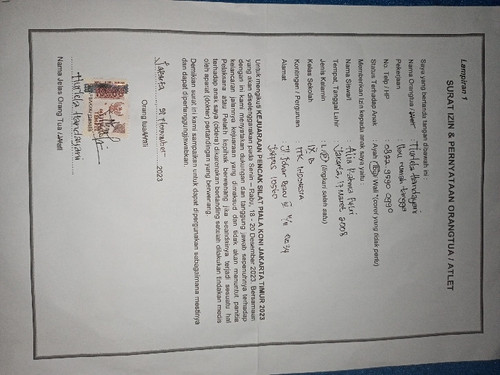 Lampiran 1
SURAT IZIN & PERNYATAAN ORANGTUA / ATLET
Saya yang bertanda tangan dibawah ini
Nama Orangtua / Wali : Handayani
Pekerjaan : Ibu rumah tangga
No. Telp / HP : 0822 9990 0990
Status Terhadap Anak : Ayah / Ibu / Wali *(coret yang tidak perlu)
Memberikan Izin kepada anak saya yaitu
Nama Siswa/i : Putri
Tempat, Tanggal Lahir : Jakarta, 17 Maret 2008
Jenis Kelamin : L / P (lingkari salah satu)
Kelas Sekolah : IX. B
Kontingen / Perguruan : TTK INDONESIA
Alamat
Untuk mengikuti KEJUARAAN PENCAK SILAT PIALA KONI JAKARTA TIMUR 2023
yang akan diselenggarakan pada Senin – Rabu, 18 - 20 Desember 2023. Bersamaan
dengan ini, kami menyatakan dukungan dan tanggung jawab sepenuhnya terhadap
kelancaran jalannya kejuaraan yang dimaksud dan tidak akan menuntut panitia
Pelaksana atau Pelatih apabila seandainya terjadi sesuatu hal
terhadap anak saya (cidera) sesudah dilakukan tindakan medis
oleh aparat (dokter) pertandingan yang berwenang.
Demikian surat ini kami sampaikan untuk dapat dipergunakan sebagaimana mestinya
dan dapat dipertanggungjawabkan.
Jakarta, 2023
Orang tua/Wali
Handayani
Nama Jelas Orang Tua / Wali